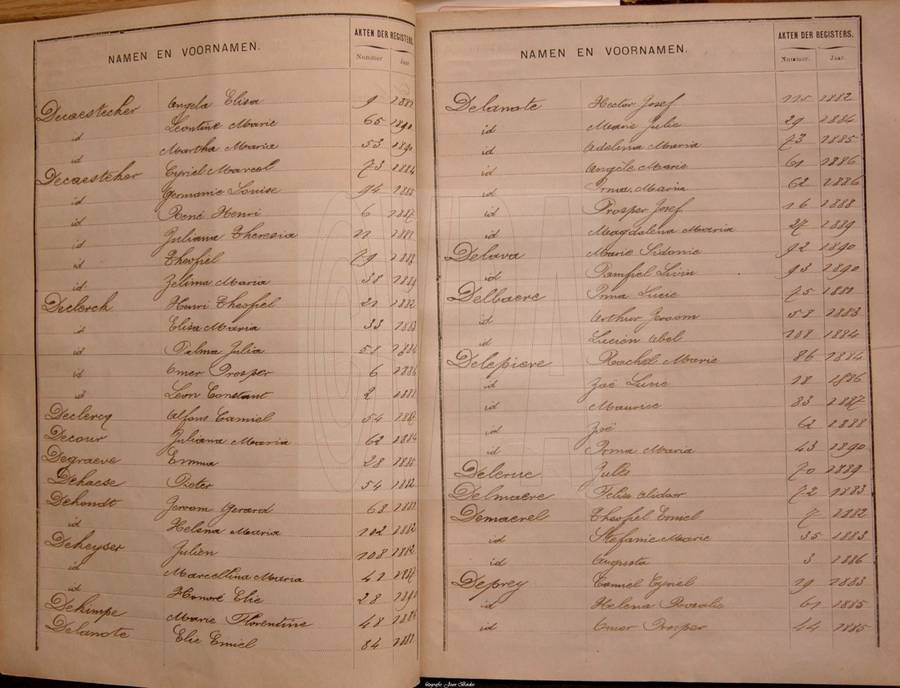 NAMEN EN VOORNAMEN. AKTEN DER REGISTERS.
Nummer Jaar
Decaestecker Angela Elisa 9 1882
id Leontine Marie 65 1890
id Martha Maria 53 1890
Decaesteker Cyriel Marcel 73 1884
id Germanie Louise 94 1885
id René Henri 6 1887
id Juliana Theresia 11 1888
id Theofiel 79 1888
id Zelima Maria 38 1889
Declerck Henri Theofiel 21 1882
id Elisa Maria 33 1883
id Palma Julia 58 1886
id Omer Prosper 6 1886
id Leon Constant 2 1888
Declercq Alfons Camiel 54
Decour Juliana Maria 62 1884
Degraeve Emma 28
Dehaese Pieter 54 1882
Dehondt Jeroom Gerard 68 1881
id Helena Maria 102 1882
Deheyser Julien 108 1882
id Marcellina Maria 42 1887
id Honoré Elie 28 1890
Dekimpe Marie Florentine 48 1886
Delanote Elie Emiel 84 1881
NAMEN EN VOORNAMEN. AKTEN DER REGISTERS.
Nummer. Jaar.
Delanote Hector Josef 115 1882
id Marie Julie 29 1884
id Adelina Maria 73 1885
id Angèle Marie 61 1886
id Irma Maria 62 1886
id Prosper Josef 16 1888
id Magdalena Maria 27 1889
Delava Marie Sidonie 92 1890
id Kamiel Livin 93 1890
Delbaere Irma Lucie 75 1881
id Arthur Jeroom 58 1883
id Lucien Abel 108 1884
Delepiere Rachel Marie 86 1884
id Zoë Lucie 18 1886
id Maurice 83 1887
id Zoë 62 1888
id Irma Maria 43 1890
Deleruc Jules 70 1889
Delmaere Felix Alidoor 72 1883
Demaerel Theofiel Emiel 7 1882
id Stefanie Marie 35 1883
id Augusta 3 1886
Deprey Camiel Cyriel 19 1883
id Helena Rosalie 61 1885
id Omer Prosper 44 1885